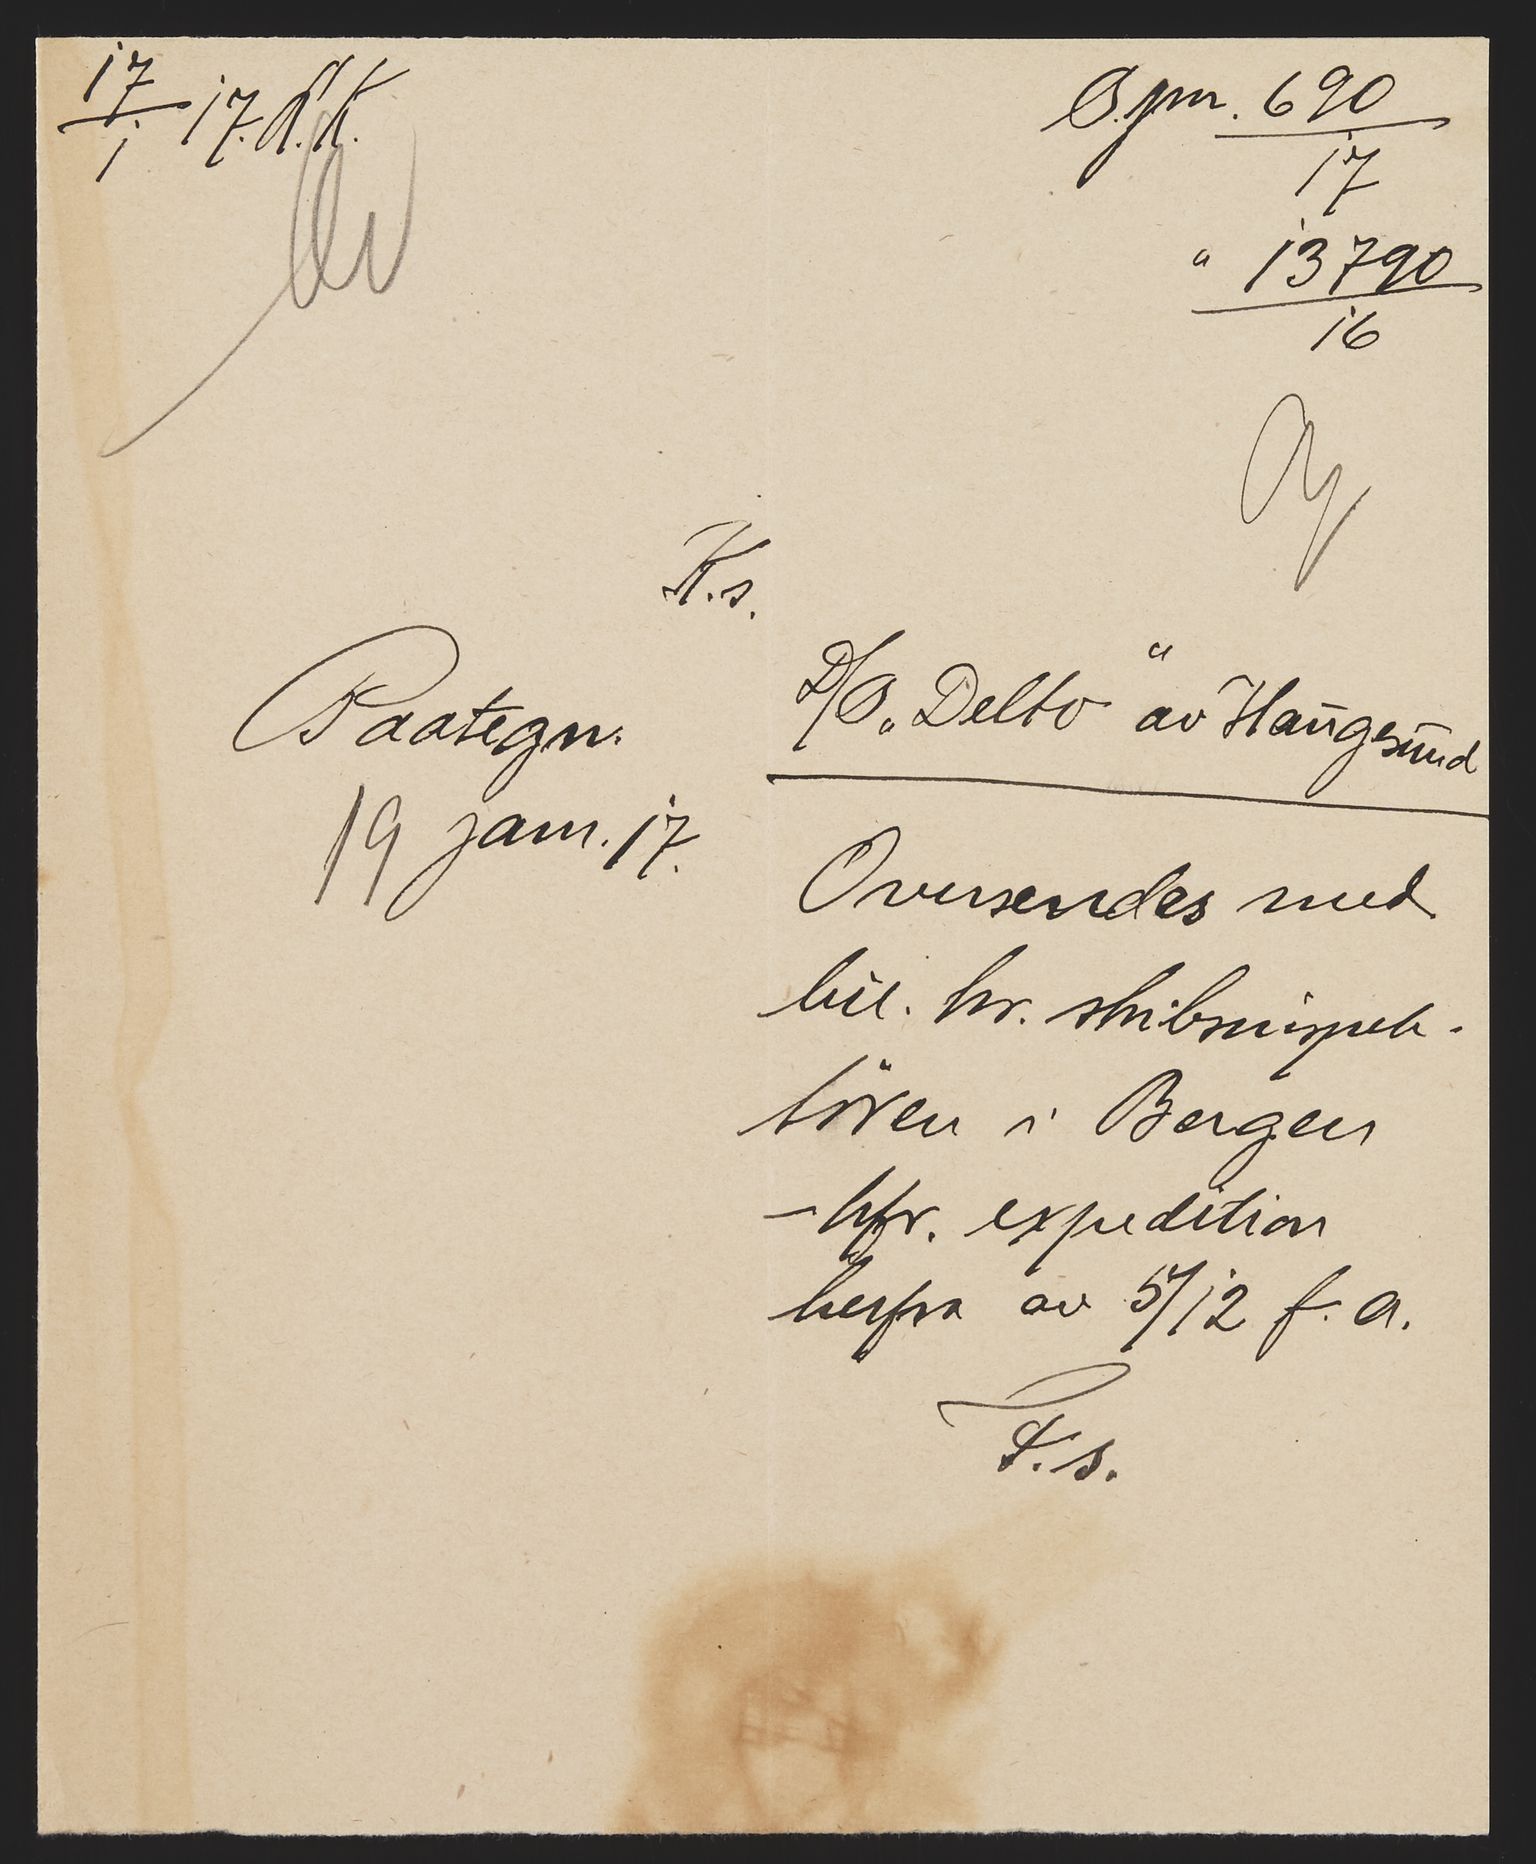 17/1 17. K.K.
S.jnr. 690/17
" 13790/16
K.s.
Paategn.
19 jan. 17.
D/S. „Delto“ av Haugesund
Oversendes med
bil. hr. skibsinspek-
tören i Bergen
- hfr. expedition
herfra av 5/12 f. a.
F.s.